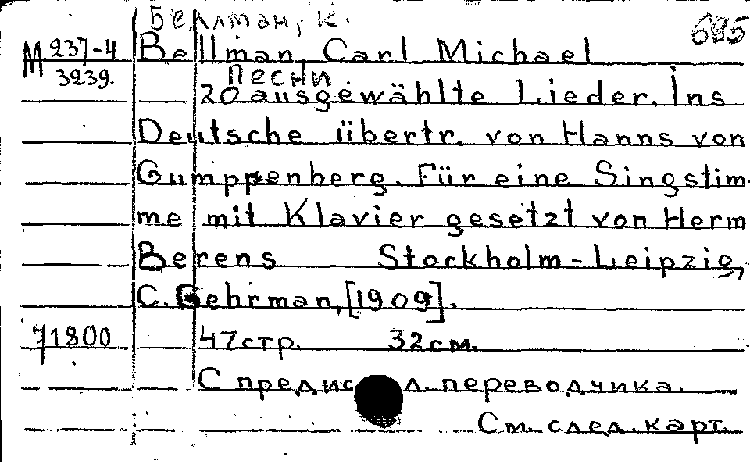 Беллман, К.
685
M 237-4
3239.
Bellman, Carl Michael
Песни
20 ausgewählte Lieder. Ins
Deutsche übertr. von Hanns von
Gumppenberg. Für eine Singstim-
me mit Klavier gesetzt von Herm
Berens Stockholm-Leipzig,
C. Gehrman, [1909].
71800
47 стр. 32 см.
С предисл. переводчика.
См. след. карт.